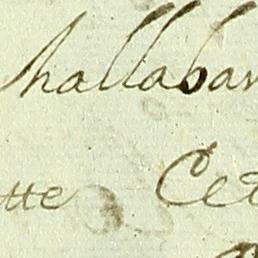 hallaban
tte Cet